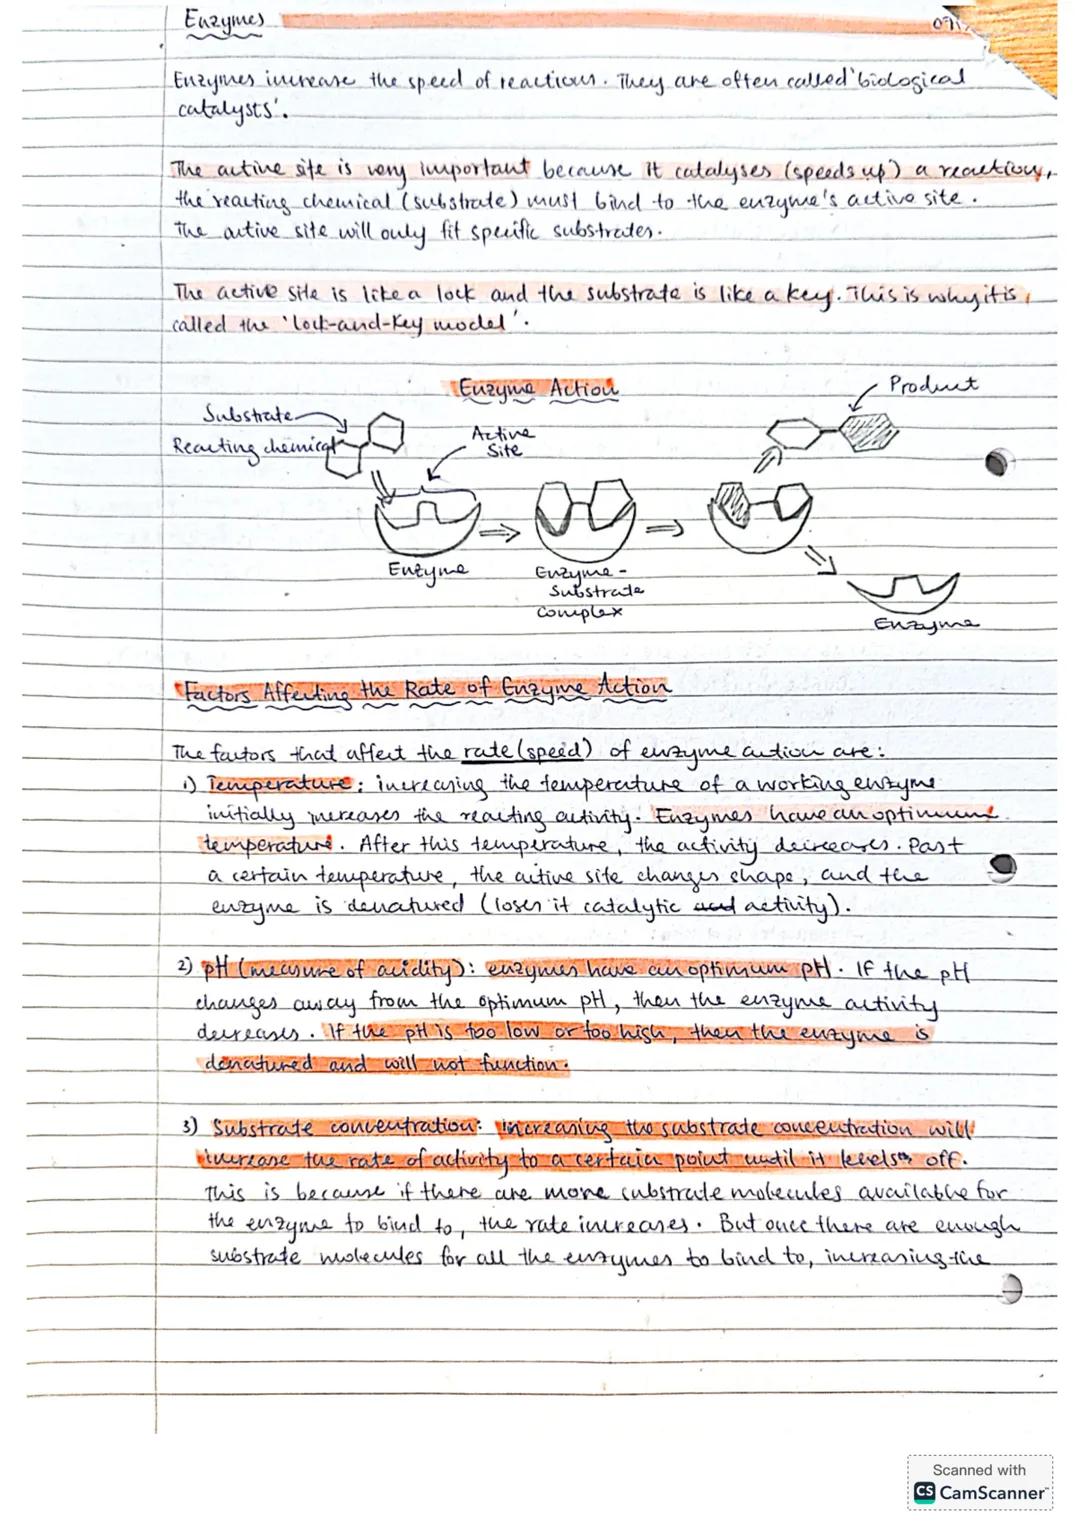 Enzymes
Enzymes increase the speed of reactions. They are often called 'biological
catalysts'.
The active site is very important because it catalyses (speeds up) a reaction,
the reacting chemical (substrate) must bind to the enzyme's active site.
The active site will only fit specific substrates.
The active site is like a lock and the substrate is like a key. This is why it is
called the 'lock-and-key model'.
Enzyme Action
Product
Substrate
Reacting chemical
Active
Site
Enzyme
Enzyme -
Substrate
complex
Enzyme
Factors Affecting the Rate of Enzyme Action
The factors that affect the rate (speed) of enzyme action are:
1) Temperature: increasing the temperature of a working enzyme
initially increases the reacting activity. Enzymes have an optimum
temperature. After this temperature, the activity decreases. Past
a certain temperature, the active site changes shape, and the
enzyme is denatured (loses it catalytic activity).
2) pH (measure of acidity): enzymes have an optimum pH. If the pH
changes away from the optimum pH, then the enzyme activity
decreases. If the pH is too low or too high, then the enzyme is
denatured and will not function.
3) Substrate concentration: Increasing the substrate concentration will
increase the rate of activity to a certain point until it levels off.
This is because if there are more substrate molecules available for
the enzyme to bind to, the rate increases. But once there are enough
substrate molecules for all the enzymes to bind to, increasing the
Scanned with
CS CamScanner